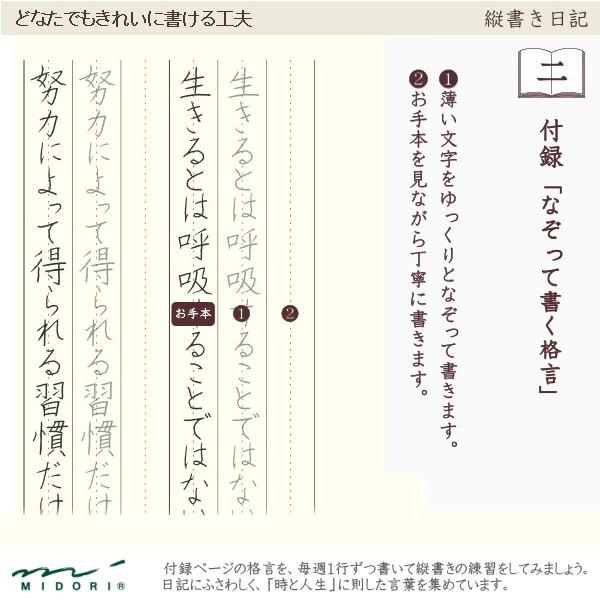 どなたでもきれいに書ける工夫
縦書き日記
二
付録「なぞって書く格言」
❶薄い文字をゆっくりとなぞって書きます。
❷お手本を見ながら丁寧に書きます。
❷
生きるとは呼吸することではない
❶
生きるとは呼吸することではない
お手本
努力によって得られる習慣だけ
努力によって得られる習慣だけ
MIDORI®
付録ページの格言を、毎週1行ずつ書いて縦書きの練習をしてみましょう。
日記にふさわしく、「時と人生」に則した言葉を集めています。